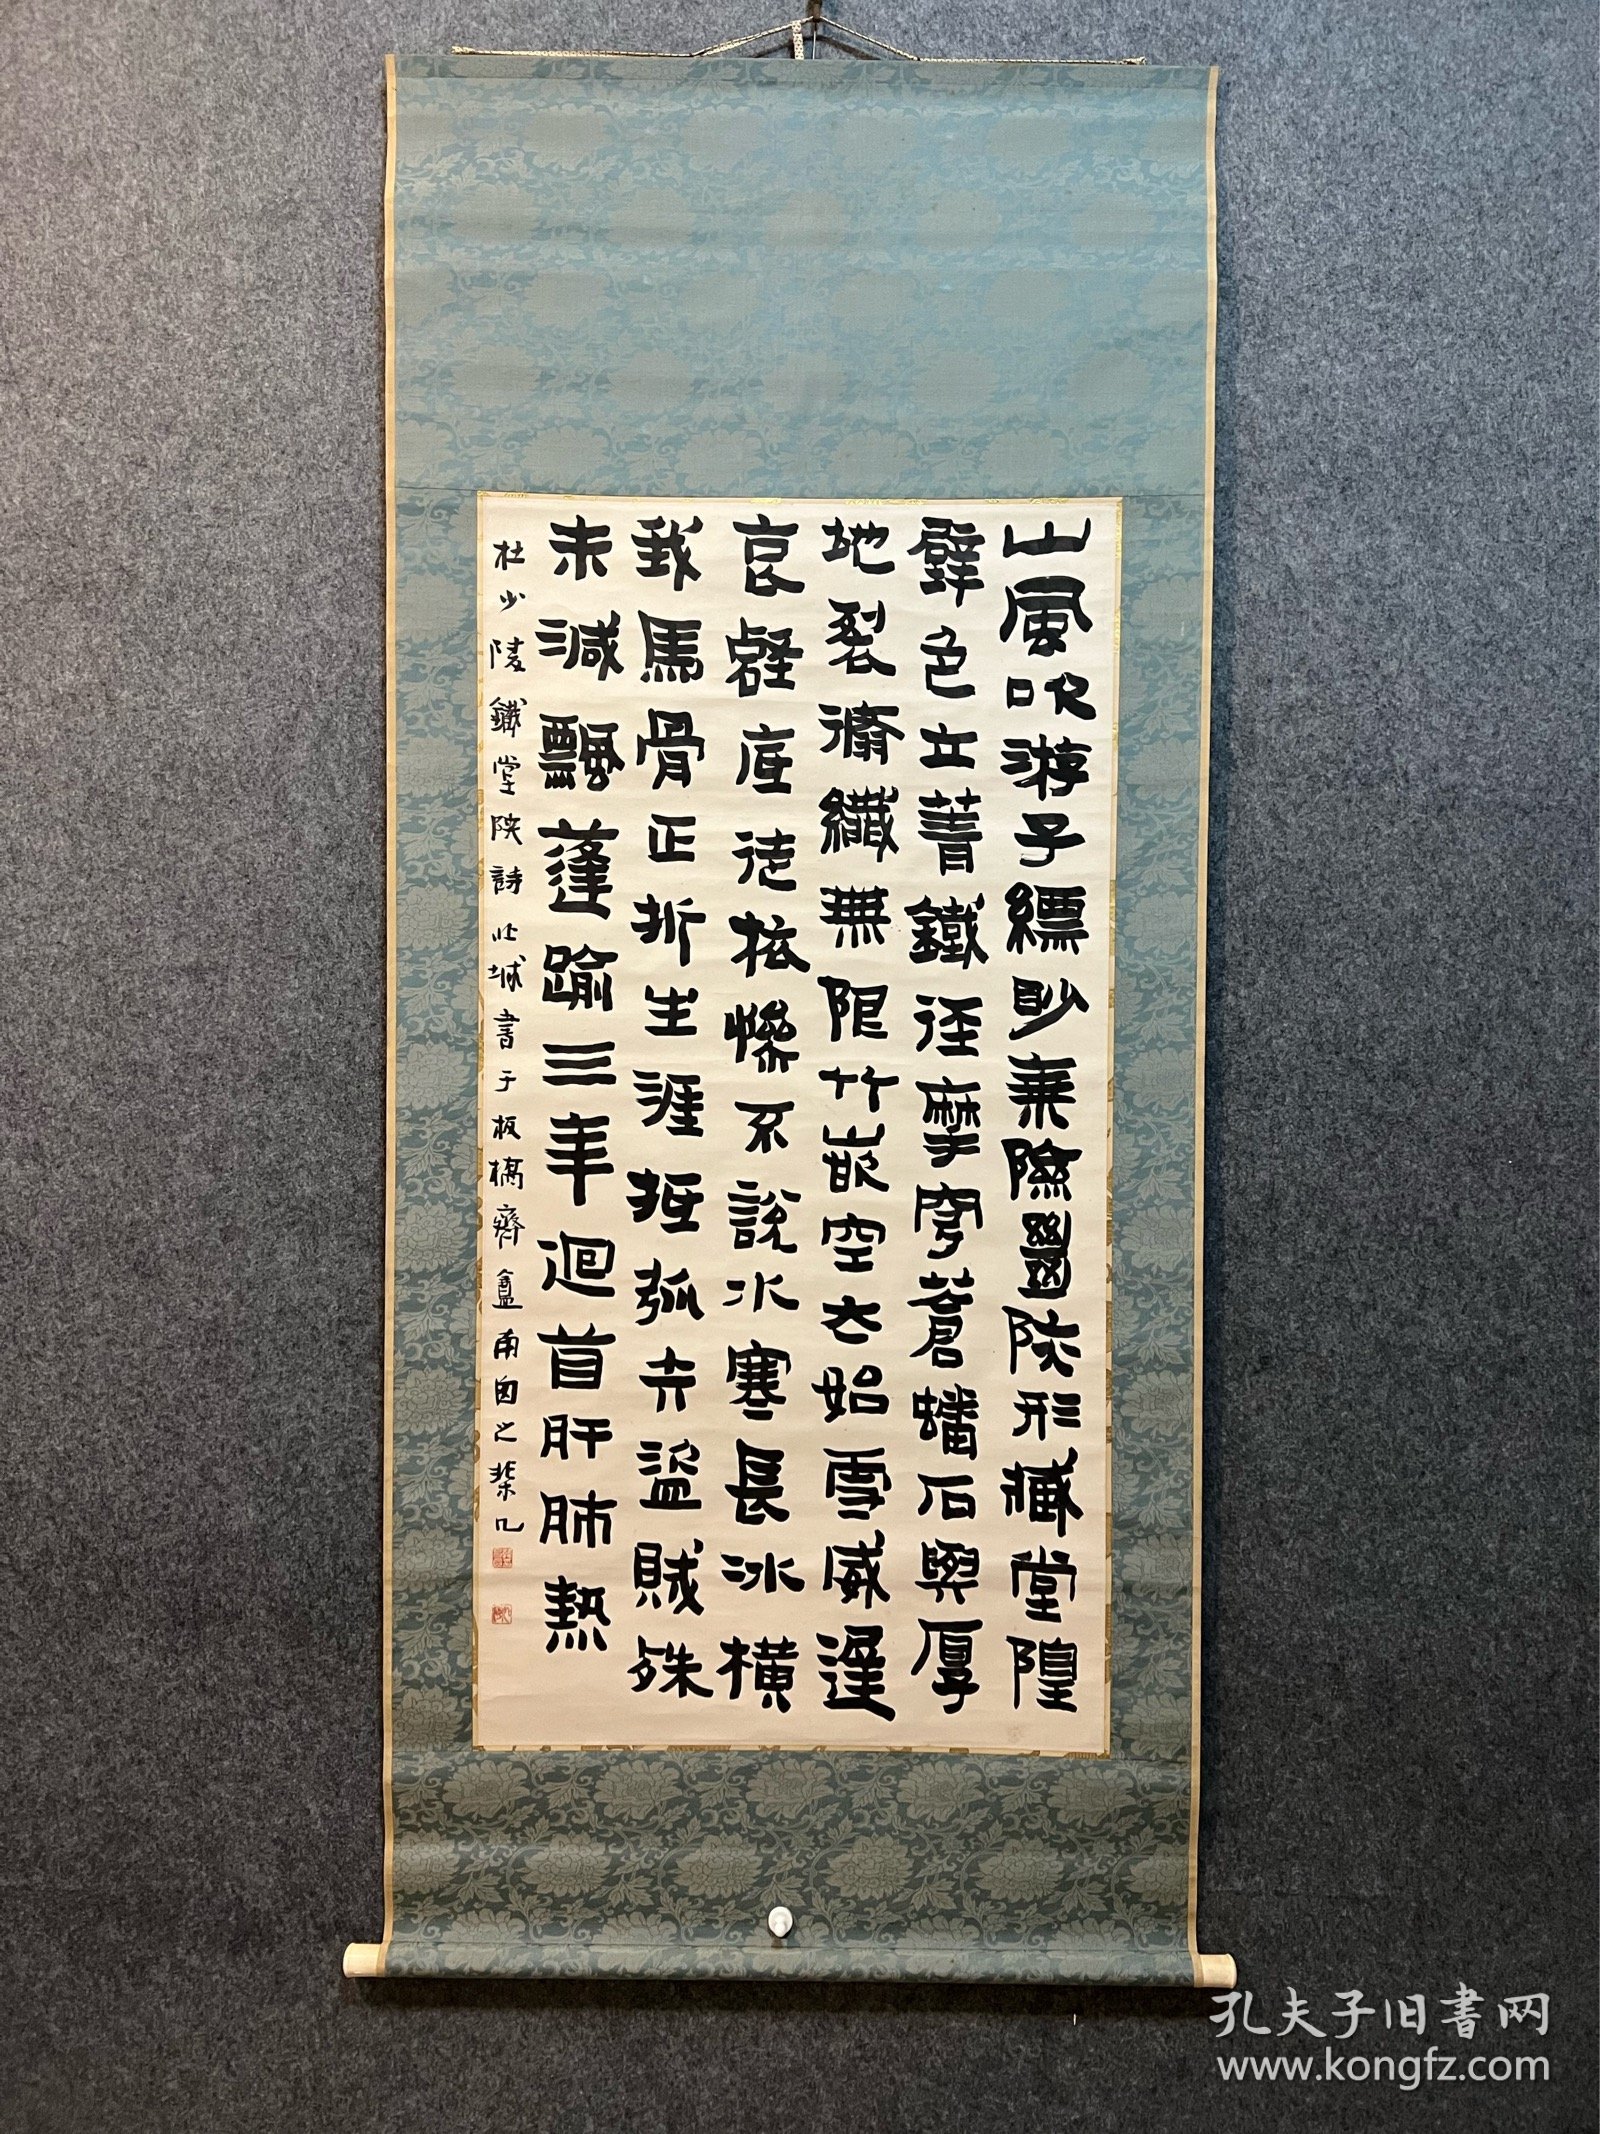 山風吹游子縹眇乘險絕陝形臧堂隍
壁色立菁鐵徑摩穹蒼蟠石與厚
地裂脩纖無限竹嵌空太始雪威遲
哀壑底徒旅慘不說水寒長冰橫
我馬骨正折生涯抵弧矢盜賊殊
未滅飄蓬踰三年迴首肝肺熱
杜少陵鐵堂陝詩丘城書于板橋齊盦南囱之棐几
孔夫子旧书网
www.kongfz.com